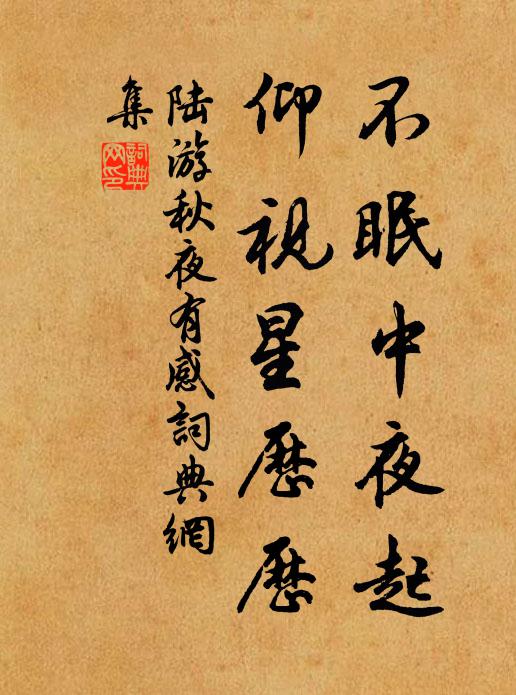 不眠中夜起
仰視星歷歷
陆游秋夜有感詞典網
集
詞典網印